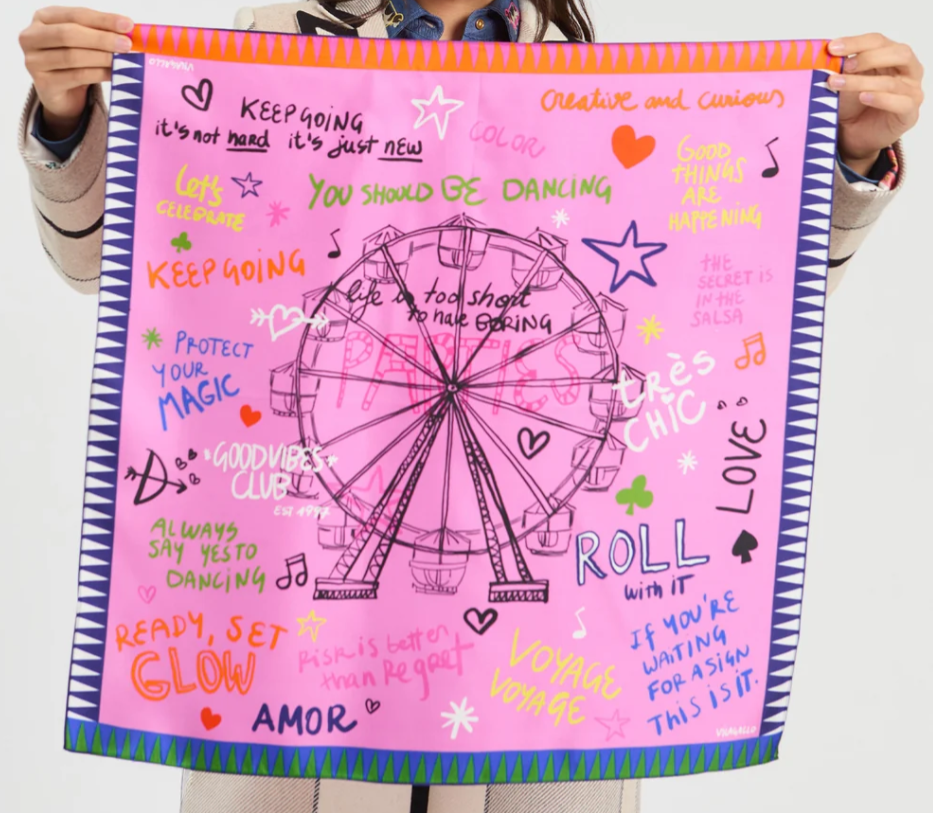 VILAGALLO
KEEP GOING
it's not hard it's just new
creative and curious
COLOR
GOOD
THINGS
ARE
HAPPENING
Let's
CELEBRATE
YOU SHOULD BE DANCING
KEEP GOING
THE
SECRET IS
IN THE
SALSA
life is too short
to have BORING
PARTIES
PROTECT
YOUR
MAGIC
très
CHIC
LOVE
GOODVIBES
CLUB
EST 1997
ALWAYS
SAY YES TO
DANCING
ROLL
with IT
READY, SET
GLOW
Risk is better
than Regret
VOYAGE
VOYAGE
IF YOU'RE
WAITING
FOR A SIGN
THIS IS IT.
AMOR
VILAGALLO